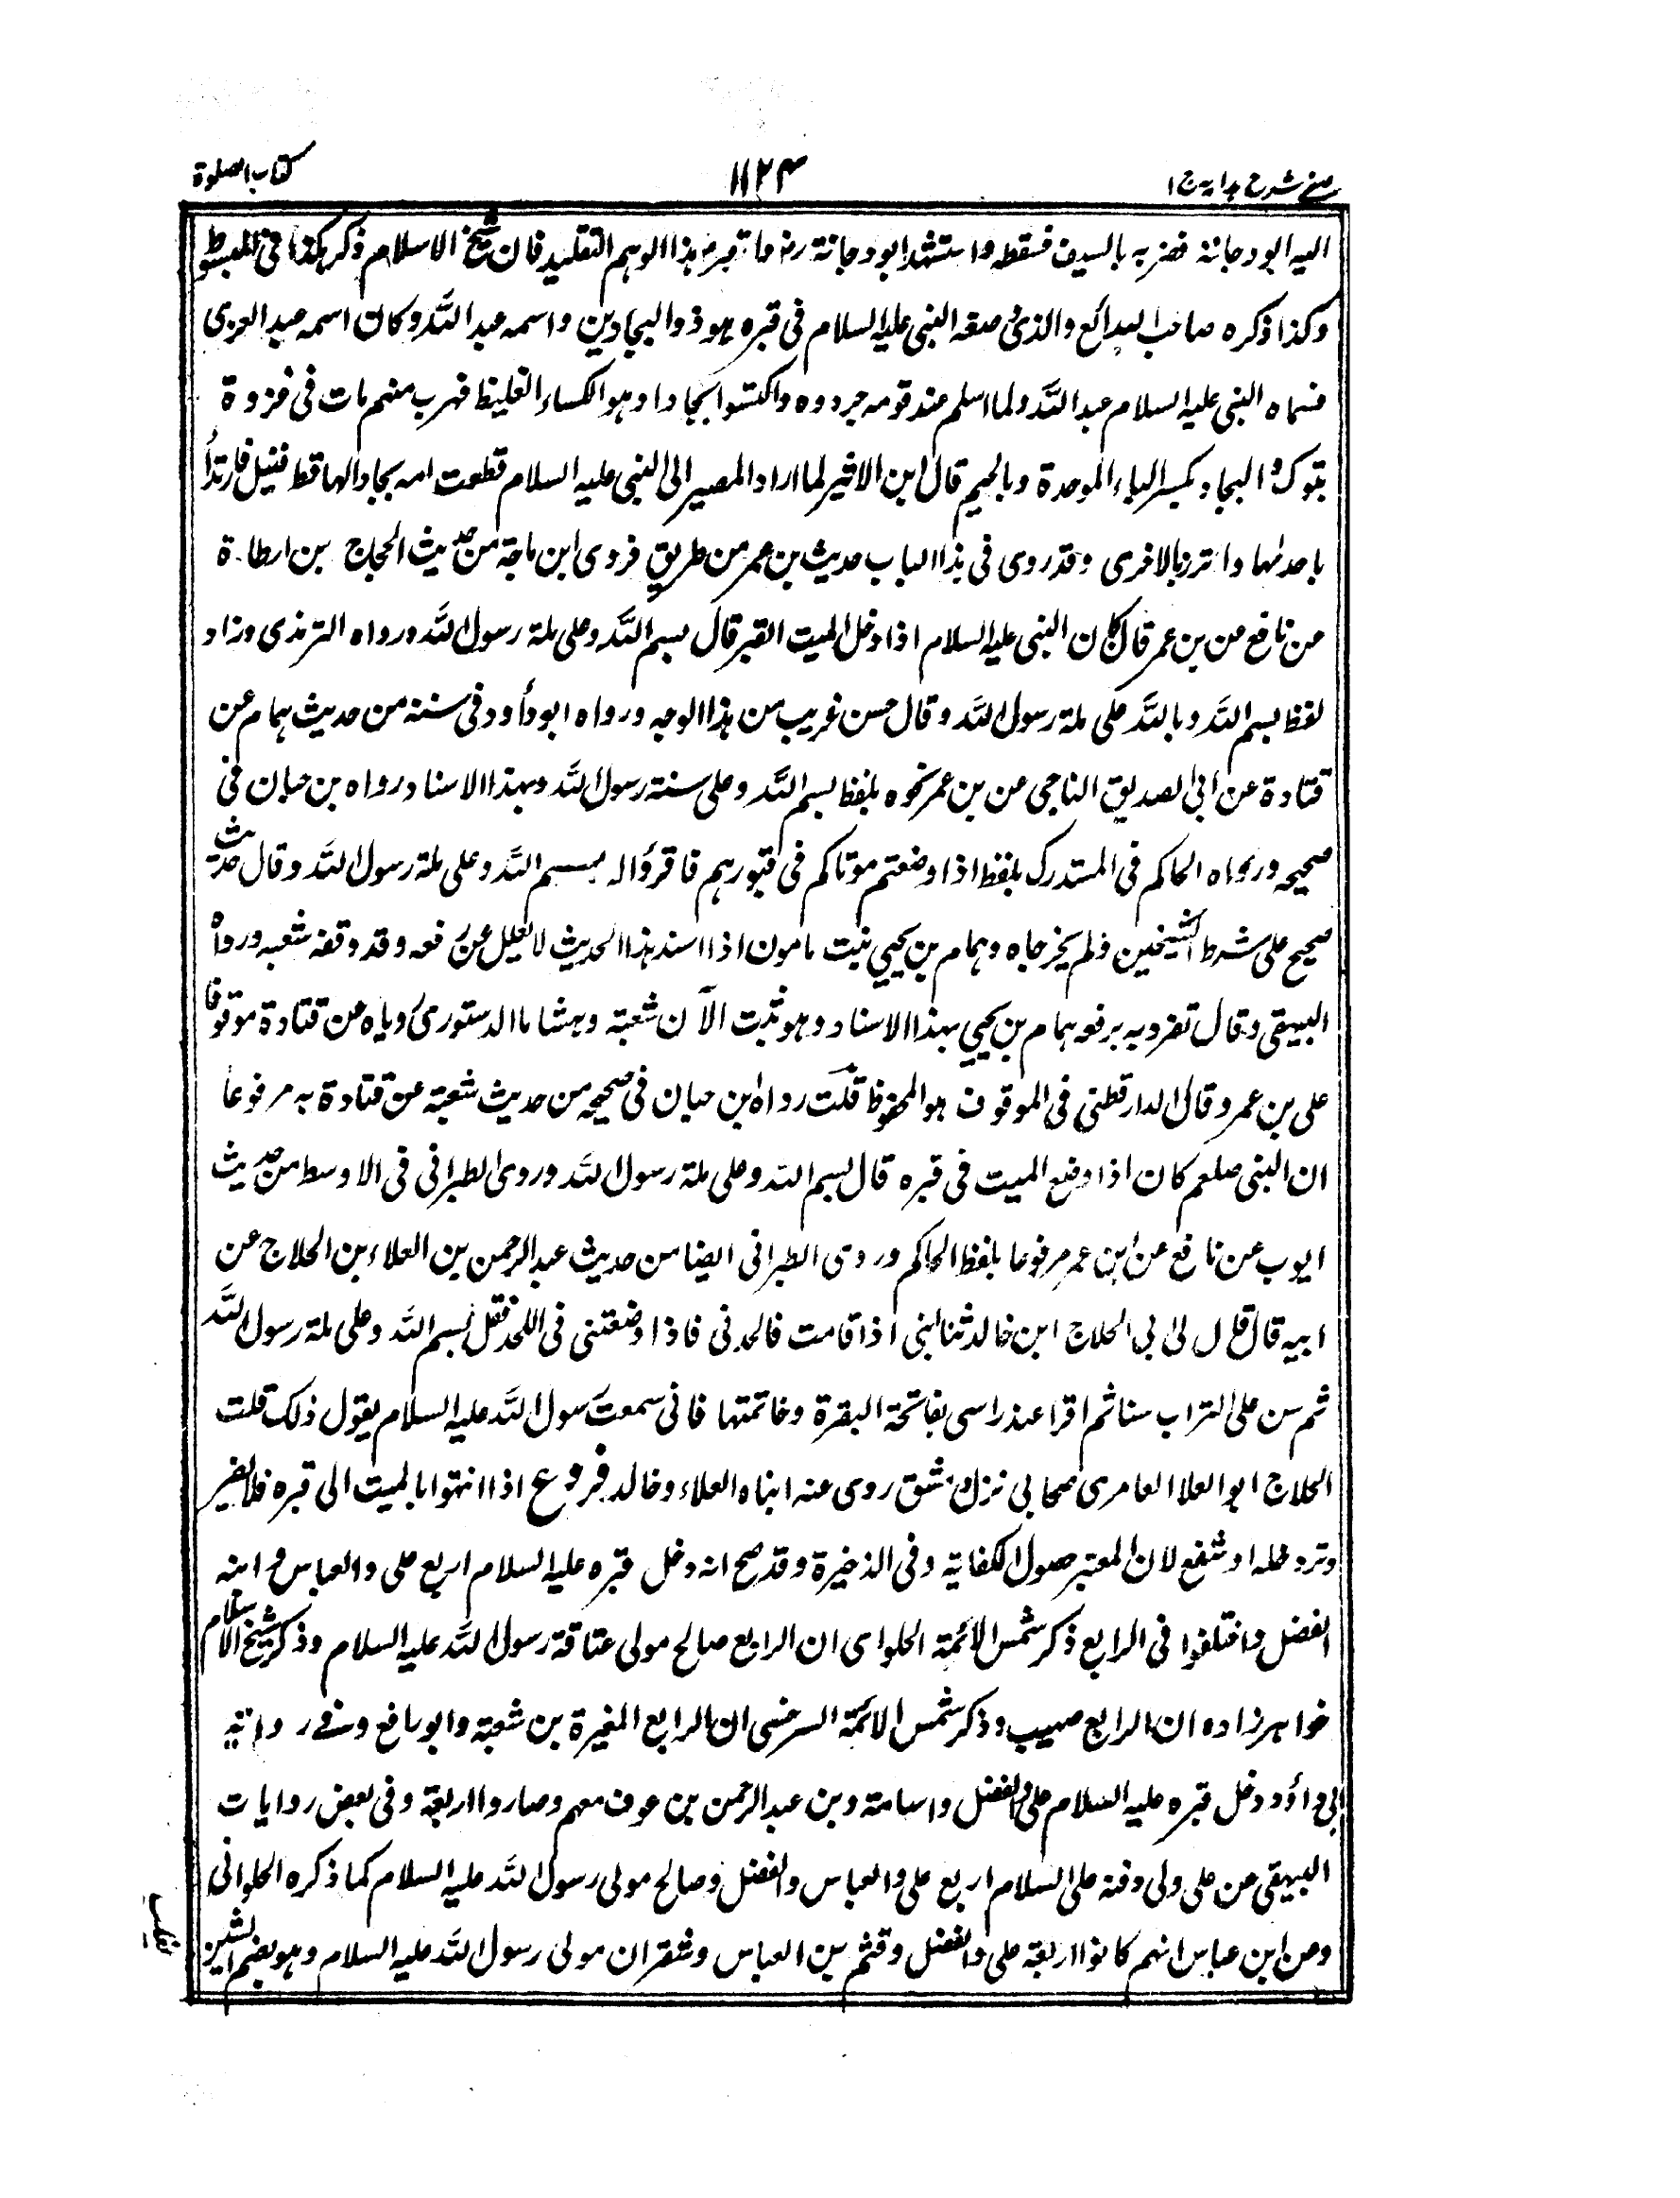 عينى شرح هدايه ج ١
١١٢٤
كتاب الصلوة
اليه ابو دجانة فضربه بالسيف فسقط واستشهد ابو دجانة رض وما تبرم هذا الوهم التقليد فان شيخ الاسلام ذكر هكذا فى المبسوط
وكذا ذكره صاحب البدائع والذى وضعه النبى عليه السلام فى قبره هو ذو البجادين واسمه عبد الله وكان اسمه عبد العزى
فسماه النبى عليه السلام عبد الله ولما اسلم عند قومه جردوه واكتسوا بجادا وهو الكساء الغليظ فهرب منهم مات فى غزوة
تبوك والبجاد بكسر الباء الموحدة وبالجيم قال ابن الاثير لما اراد المصير الى النبى عليه السلام قطعت امه بجادا لها قطعتين فارتدأ
باحدٰهما واتزر بالاخرى وقد روى فى هذا الباب حديث بن عمر من طريق فروى ابن ماجة من حديث الحجاج بن ارطاة
عن نافع عن بن عمر قال كان النبى عليه السلام اذا دخل الميت القبر قال بسم الله وعلى ملة رسول الله ورواه الترمذى وزاد
لفظ بسم الله وبالله على ملة رسول الله وقال حسن غريب من هذا الوجه ورواه ابو داود فى سننه من حديث همام عن
قتادة عن ابى الصديق الناجى عن بن عمر نحوه بلفظ بسم الله وعلى سنة رسول الله وبهذا الاسناد رواه بن حبان فى
صحيحه ورواه الحاكم فى المستدرك بلفظ اذا وضعتم موتاكم فى قبورهم فاقرؤا له بسم الله وعلى ملة رسول الله وقال حديث
صحيح على شرط الشيخين ولم يخرجاه وهمام بن يحيى ثبت مامون اذا اسند هذا الحديث لا يعلل عن رفعه وقد وقفه شعبه ورواه
البيهقى وقال تفرد به برفعه همام بن يحيى بهذا الاسناد وهو ثبت الا ان شعبة وهشاما الدستورى روياه عن قتادة موقوفا
على بن عمر وقال الدارقطنى فى الموقوف هو المحفوظ قلت رواه بن حبان فى صحيحه من حديث شعبة عن قتادة به مرفوعا
ان النبى صلعم كان اذا وضع الميت فى قبره قال بسم الله وعلى ملة رسول الله وروى الطبرانى فى الاوسط من حديث
ايوب عن نافع عن ابن عمر مرفوعا بلفظ الحاكم وروى الطبرانى ايضا من حديث عبد الرحمن بن العلاء بن الحلاج عن
ابيه قال قال لى ابى الحلاج ابن خالد ثنا ابنى اذا قامت فالحدنى فاذا وضعتنى فى اللحد فقل بسم الله وعلى ملة رسول الله
ثم سن على التراب سنا ثم اقرا عند راسى بفاتحة البقرة وخاتمتها فانى سمعت رسول الله عليه السلام يقول ذلك قلت
الحلاج ابو العلا العامرى صحابى نزل دمشق روى عنه ابناه العلاء وخالد فروع اذا انتهوا بالميت الى قبره فلا يضير
وتر دخله او شفع لان المعتبر حصول الكفاية وفى الذخيرة وقد صح انه دخل قبره عليه السلام اربع على والعباس وابنه
الفضل واختلفوا فى الرابع ذكر شمس الائمة الحلواى ان الرابع صالح مولى عتاقة رسول الله عليه السلام وذكر شيخ الاسلام
خواهر زاده ان الرابع صهيب وذكر شمس الائمة السرخسى ان الرابع المغيرة بن شعبة وابو رافع وفى رواية
ابى داؤد دخل قبره عليه السلام على والفضل واسامة وبن عبد الرحمن بن عوف معهم وصاروا اربعة وفى بعض روايات
البيهقى عن على ولى دفنه على السلام اربع على والعباس والفضل وصالح مولى رسول الله عليه السلام كما ذكره الحلوانى
وعن ابن عباس انهم كانوا اربعة على والفضل وقثم بن العباس وشقران مولى رسول الله عليه السلام وهو بضم الشين